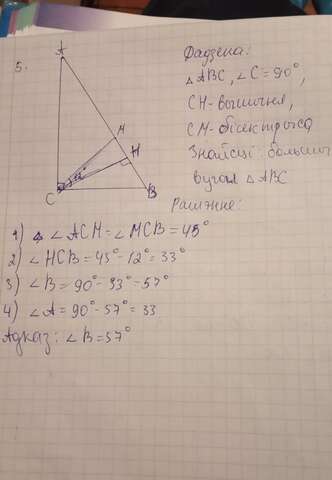 5.
A
M
H
C
B
12°
Дадзена:
△ABC, ∠C = 90°,
CH - вышыня,
CM - бісектрыса
Знайсці: большы
вугал △ABC
Рашэнне:
1) ∠ACM = ∠MCB = 45°
2) ∠HCB = 45° - 12° = 33°
3) ∠B = 90° - 33° = 57°
4) ∠A = 90° - 57° = 33
Адказ: ∠B = 57°